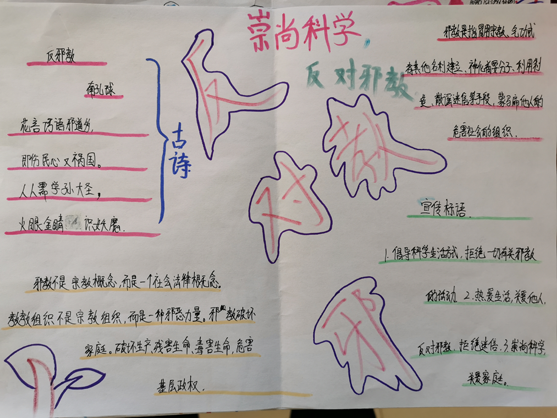 崇尚科学,
反对邪教
反邪教
危言诱语邪道多,
即伤民心又祸国。
人人需学孙大圣,
火眼金睛识妖魔。
古诗
反
对
邪
教
邪教是指冒用宗教、气功或
者其他名义建立、神化首要分子、利用制
造、散布迷信邪说等手段
危害社会的组织.
宣传标语
1.倡导科学生活方式,拒绝一切有关邪教
的活动 2.热爱生活,关爱他人
反对邪教,拒绝迷信.3.崇尚科学,
关爱家庭.
邪教不是宗教概念,而是一个社会法律概念。
教组织不是宗教组织,而是一种邪恶力量。邪教破坏
家庭。破坏生产,残害生命,毒害生命,危害
基层政权.